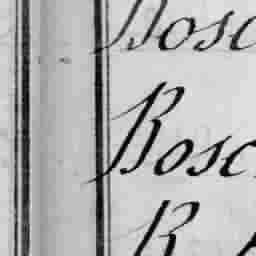 Bosc
Bosc
B